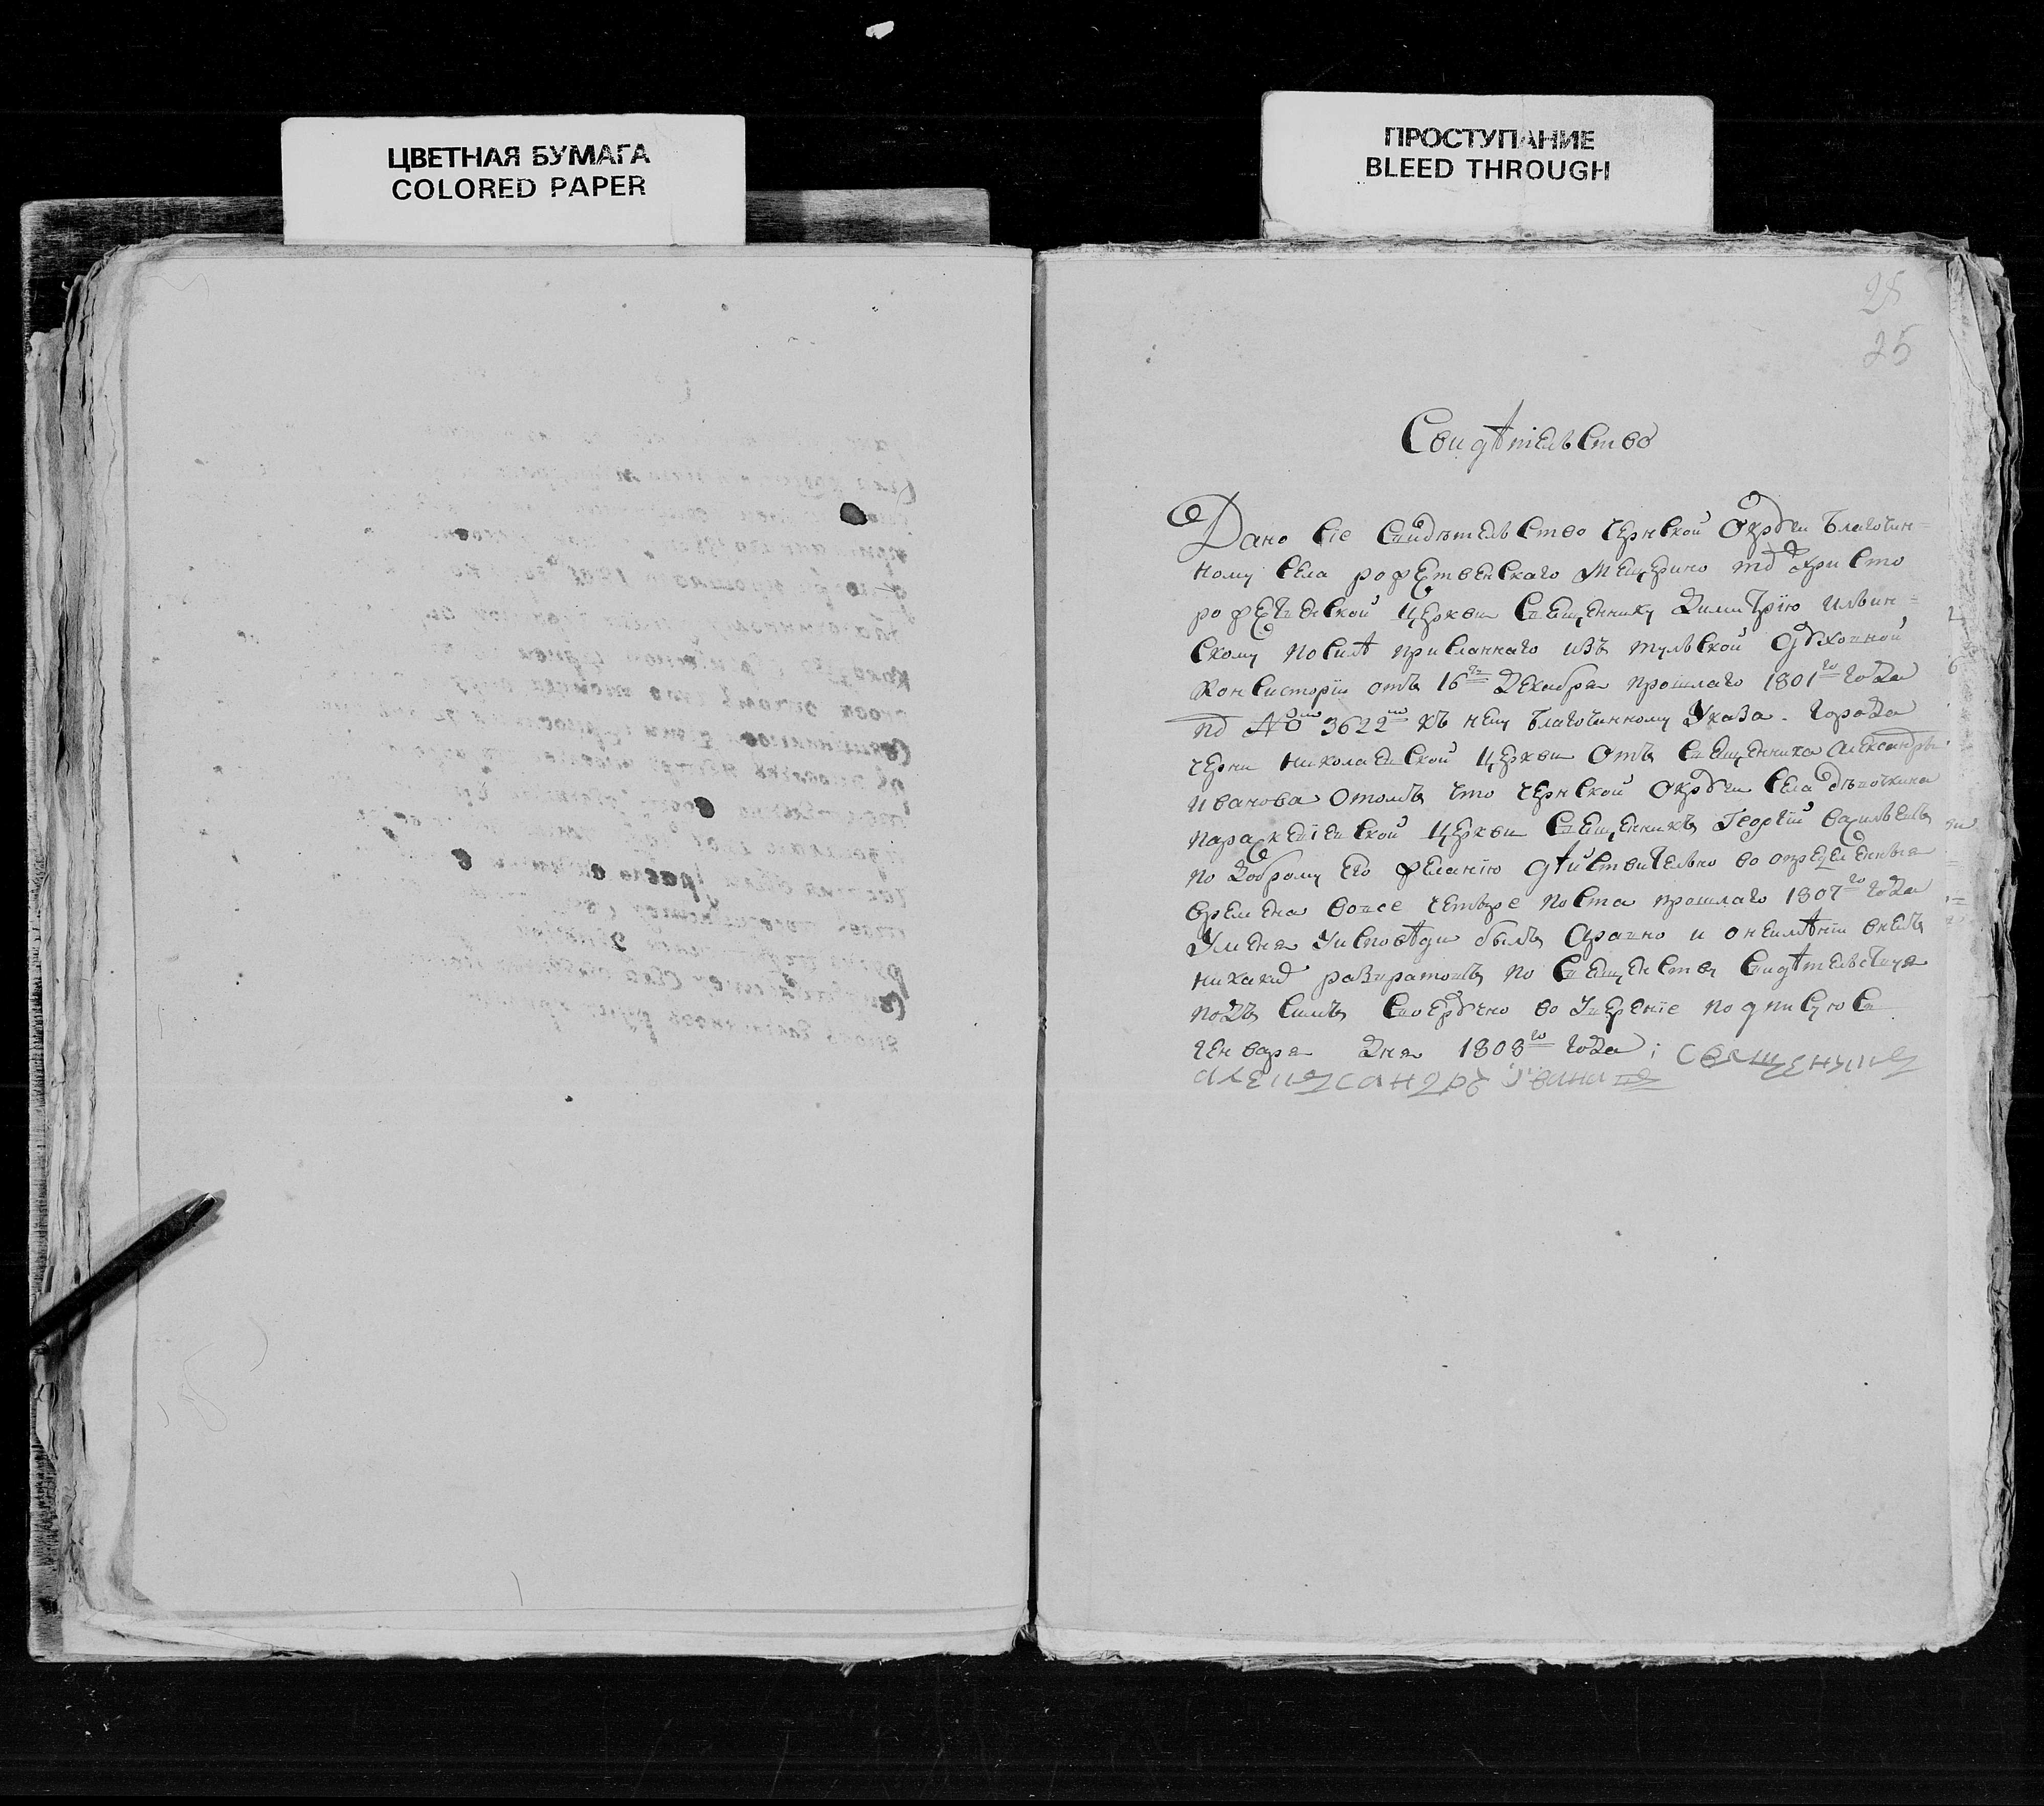 ЦВЕТНАЯ БУМАГА
COLORED PAPER
ПРОСТУПАНИЕ
BLEED THROUGH
25
25
Свидѣтельство
Дано сіе свидѣтельство чернской округи благочин=
ному села рожественскаго Мещерино тож христо
рожественской церкви священнику Димитрію ильин=
скому по силѣ присланнаго изъ тульской духовной
Консисторіи отъ 16го Декабря прошлаго 1801го года
под №м 3622м къ нему благочинному Указа. города
черни николаевской церкви отъ священника Александра
иванова о томъ что чернской округи села
параскевіевской церкви священникъ Георгій васильевъ
по доброму его желанію дѣйствительно во определенныя
времена во все четыре поста прошлаго 1807го года
У меня У исповѣди былъ и о неимѣніи в немъ
никаких по священству свидѣтельствуя
подъ симъ своеручно во Уверение подписуюсь
генваря дня 1808го года; священникъ
александръ Иванивъ